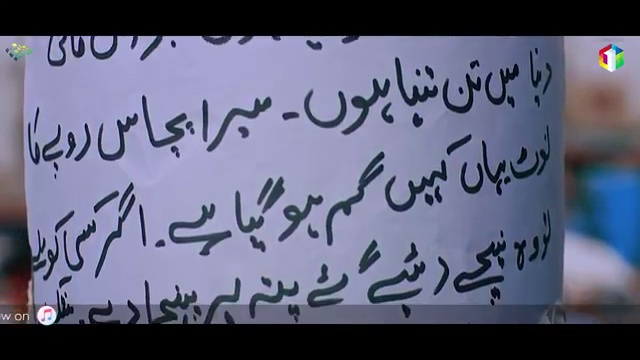 دنیا میں تن تنہا ہوں۔ میرا پچاس روپے کا
نوٹ یہاں کہیں گم ہو گیا ہے۔ اگر کسی کو ملے
تو وہ نیچے دئیے گئے پتہ پر پہنچا دے۔
w on